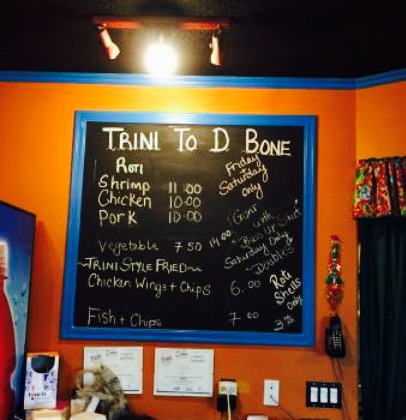 TRINI TO D BONE
ROTI
Shrimp 11.00
Chicken 10.00
Pork 10.00
Vegetable 7 50
~TRINI STYLE FRIED~
Chicken Wings + Chips 6.00
Fish + Chips 7 00
Friday
Saturday
only
"Goat
with
14.00
Saturday Only
"Doubles"
Roti
Shells
Only
3